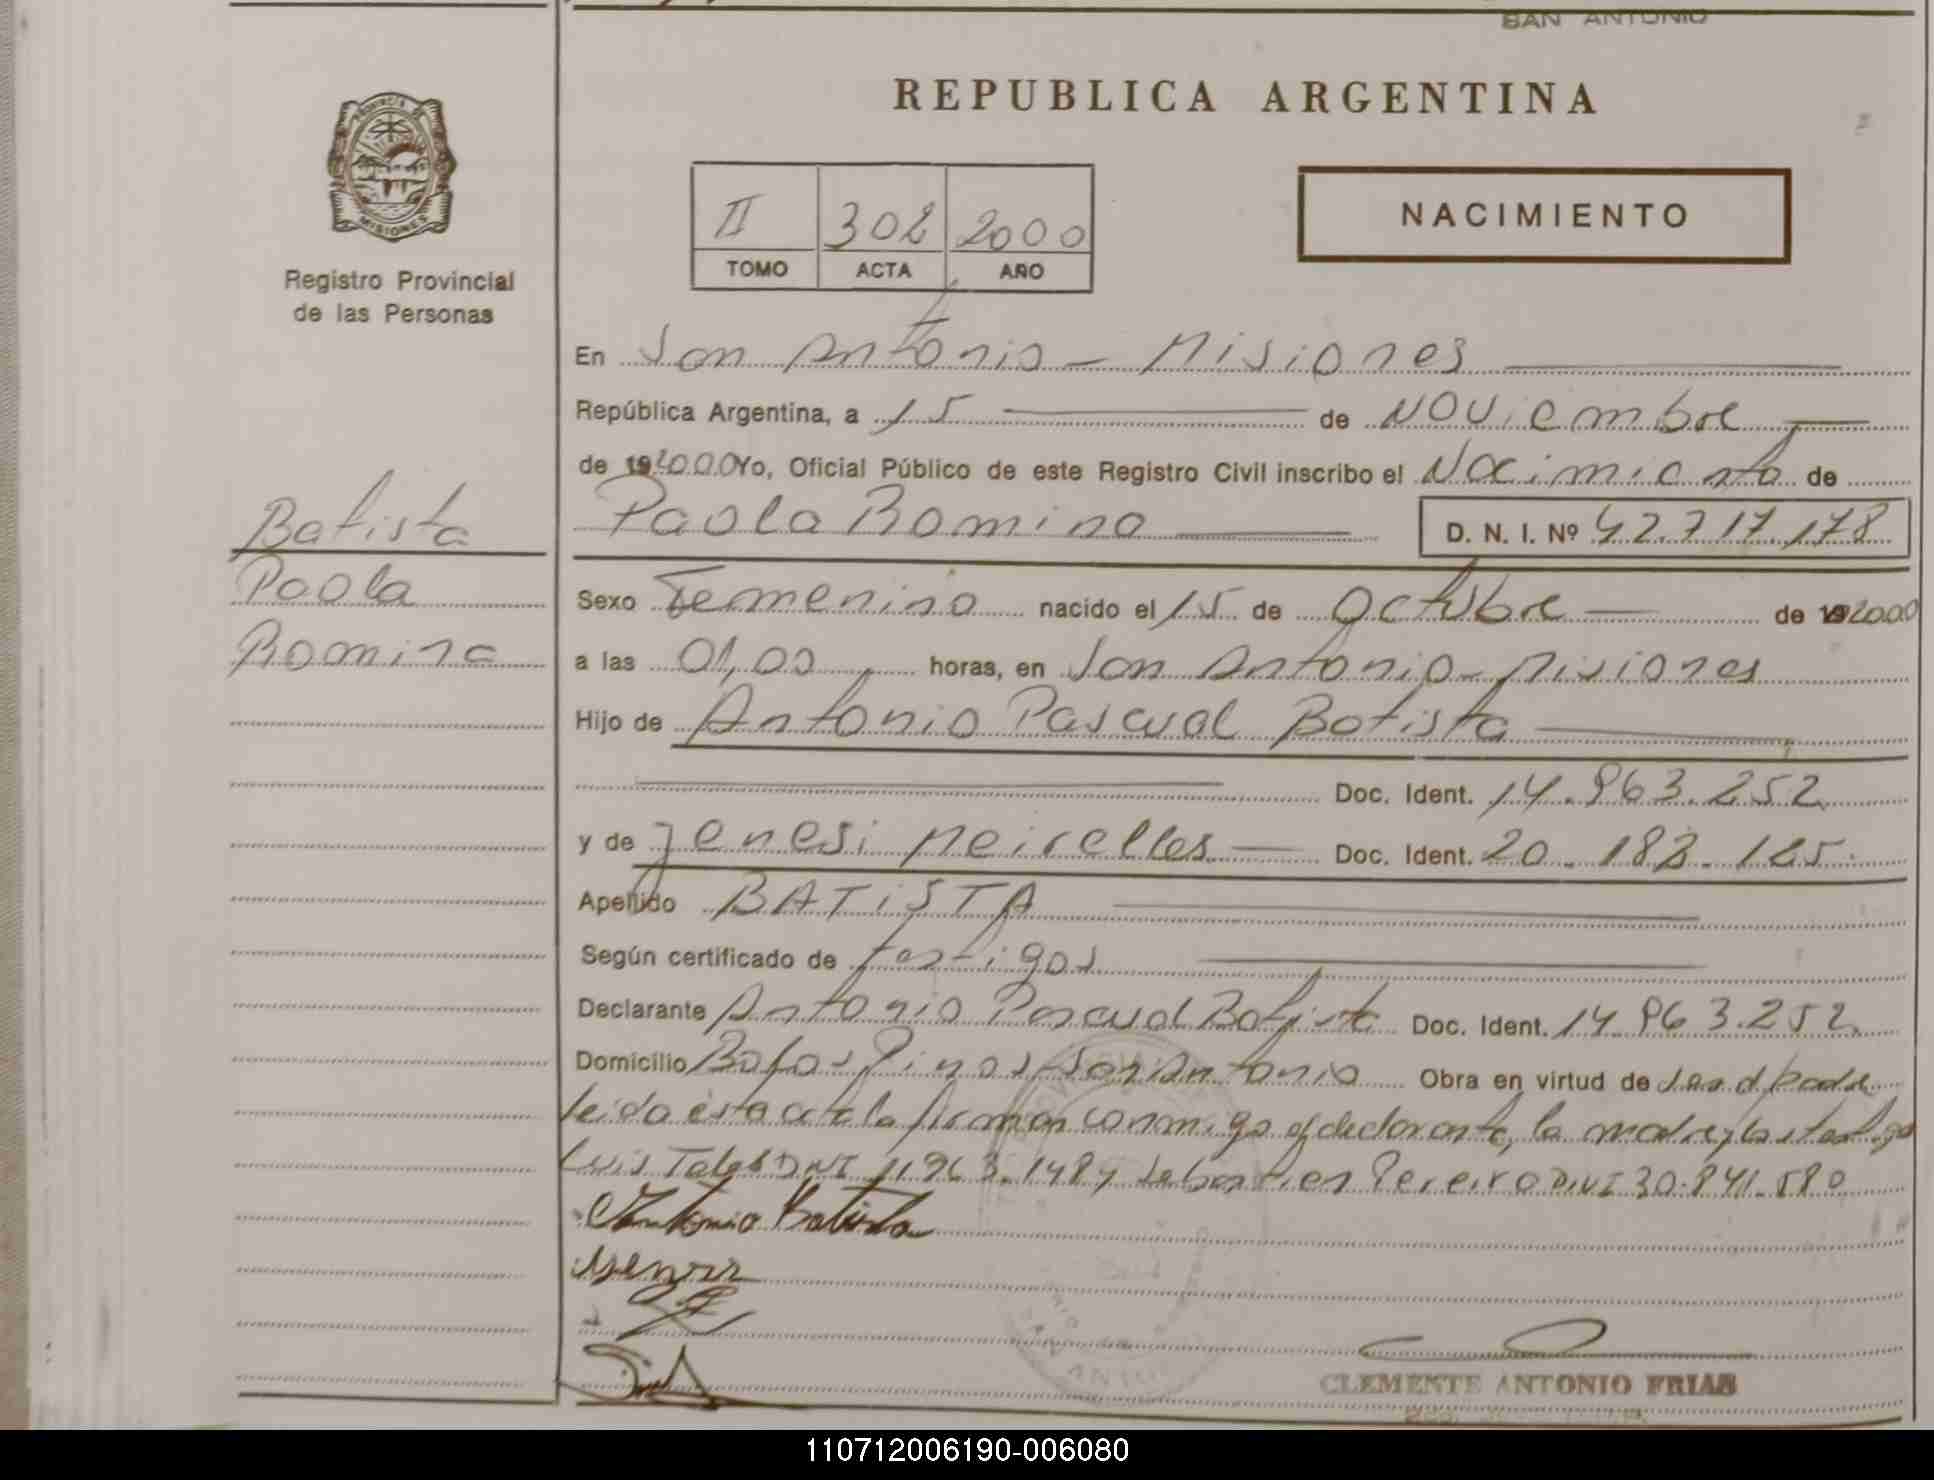 SAN ANTONIO
REPUBLICA ARGENTINA
PROVINCIA DE
MISIONES
Registro Provincial
de las Personas
II 302 2000
TOMO ACTA AÑO
NACIMIENTO
En San Antonio - Misiones
República Argentina, a 15 de Noviembre
de 192000 Yo, Oficial Público de este Registro Civil inscribo el Nacimiento de
Paola Romina D. N. I. Nº 42.717.178
Batista
Paola
Romina
Sexo Femenino nacido el 15 de Octubre de 192000
a las 01,00 horas, en San Antonio - Misiones
Hijo de Antonio Pascual Batista
Doc. Ident. 14.963.252
y de Jenesi Meirelles Doc. Ident. 20.183.125
Apellido BATiSTA
Según certificado de testigos
Declarante Antonio Pascual Batista Doc. Ident. 14.963.252
Domicilio Pinos San Antonio Obra en virtud de ser el padre
leida esta acta la firman conmigo el declarante, la madre y los testigos
Luis DNI 11.963.148 y Pereira DNI 30.841.580
Antonio Batista
CLEMENTE ANTONIO FRIAS
110712006190-006080